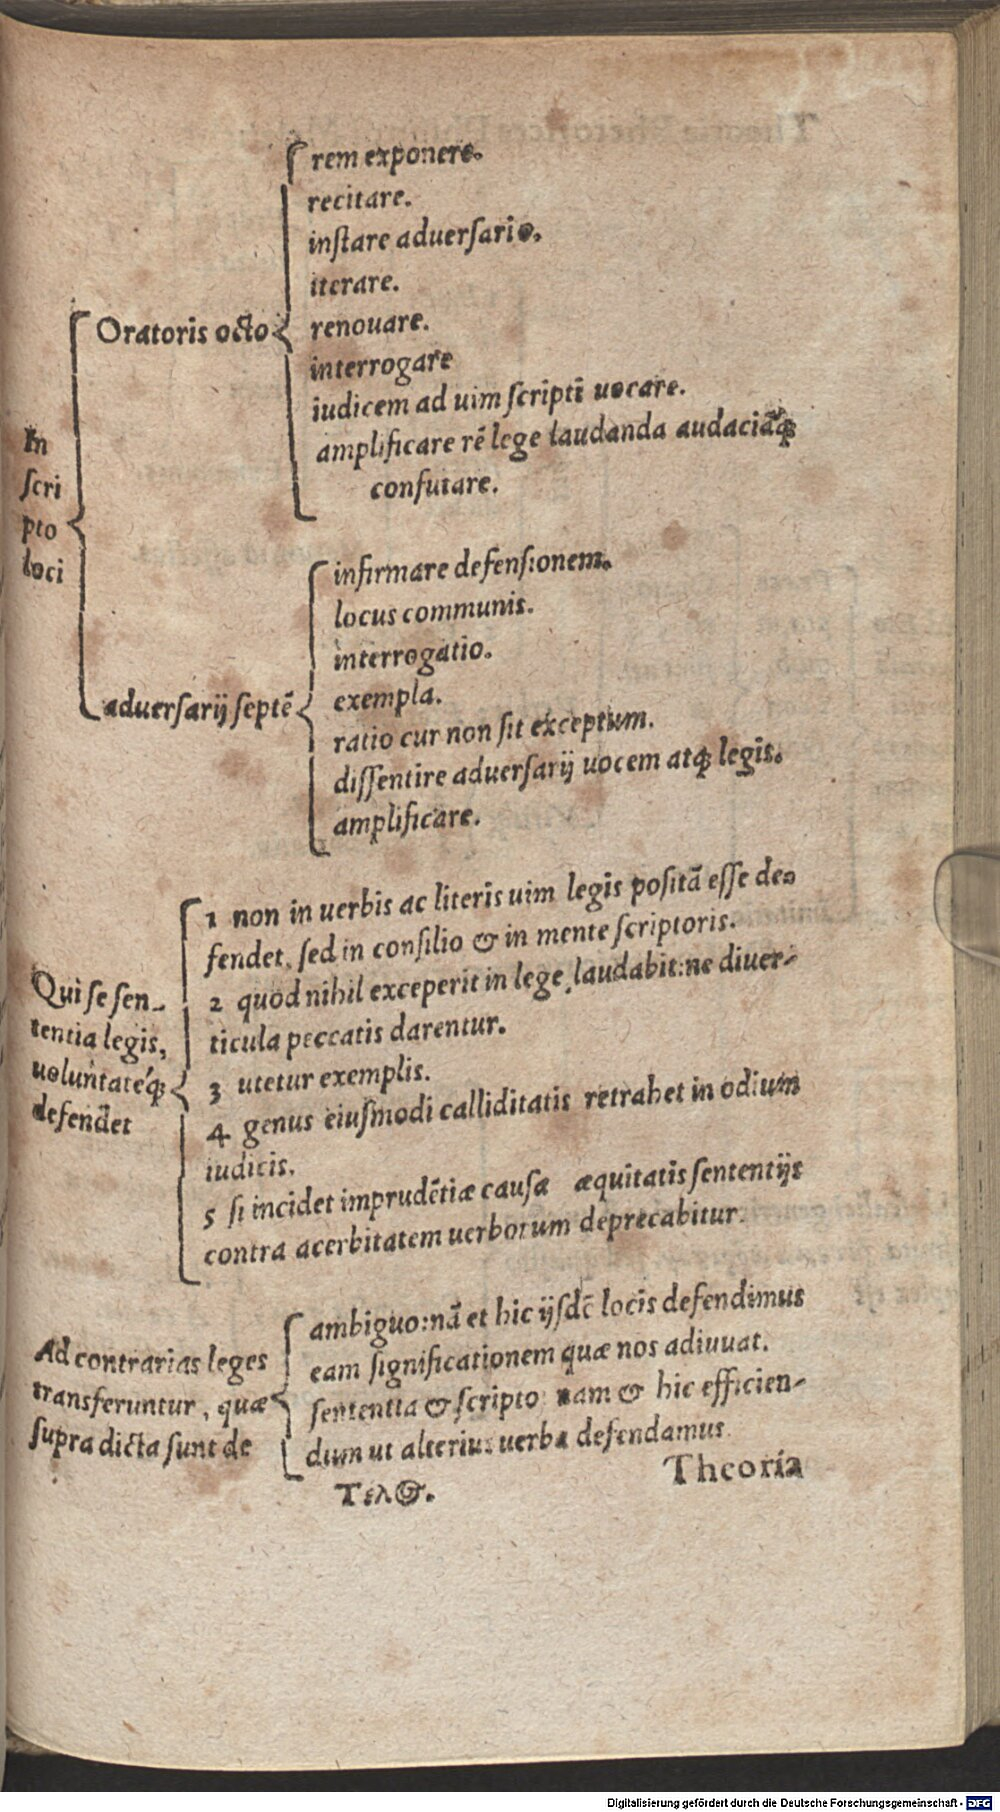 In
scri
pto
loci
Oratoris octo
rem exponere.
recitare.
inſtare aduerſario.
iterare.
renouare.
interrogare
iudicem ad uim ſcripti uocare.
amplificare rē lege laudanda audaciāq;
confutare.
aduerſarij ſeptē
infirmare defenſionem.
locus communis.
interrogatio.
exempla.
ratio cur non ſit exceptum.
diſſentire aduerſarij uocem atq; legis.
amplificare.
Qui ſe ſen-
tentia legis,
uoluntateq́;
defendet
1 non in uerbis ac literis uim legis poſitā eſſe de-
fendet, ſed in conſilio & in mente ſcriptoris.
2 quod nihil exceperit in lege, laudabit:ne diuer-
ticula peccatis darentur.
3 utetur exemplis.
4 genus eiuſmodi calliditatis retrahet in odium
iudicis.
5 ſi incidet imprudētiæ cauſa æquitatis ſententijs
contra acerbitatem uerborum deprecabitur.
Ad contrarias leges
transferuntur, quæ
ſupra dicta ſunt de
ambiguo:nā et hic ijſdē locis defendimus
eam ſignificationem quæ nos adiuuat.
ſententia & ſcripto nam & hic efficien-
dum ut alterius uerba defendamus
Τέλος.
Theoría
Digitalisierung gefördert durch die Deutsche Forschungsgemeinschaft - DFG